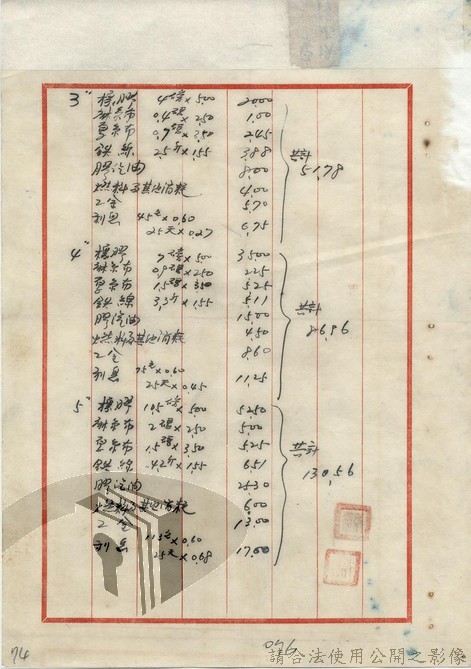 3" 橡膠 4磅×500 2000
麻条布 0.4碼×250 1.00
更条布 0.7碼×350 2.45
鉄絲 2.5斤×1.55 3.88
膠汽油 8.00
燃料及其他消耗 4.00
工金 5.70
利息 45元×0.60
25天×0.27 6.75
共計 51.78
4" 橡膠 7磅×500 3500
麻条布 0.9碼×250 2.25
更条布 1.5碼×350 5.25
鉄線 3.3斤×1.55 5.11
膠汽油 15.00
燃料及其他消耗 4.50
工金 8.60
利息 75元×0.60
25天×0.45 11.25
共計 86.96
5" 橡膠 10.5磅×5.00 52.50
麻条布 2碼×250 5.00
更条布 1.5碼×3.50 5.25
鉄絲 4.2斤×1.55 6.51
膠汽油 25.30
燃料及其他消耗 6.00
工金 13.00
利息 113元×0.60
25天×0.68 17.00
共計 130.56
74
076
請合法使用公開之影像